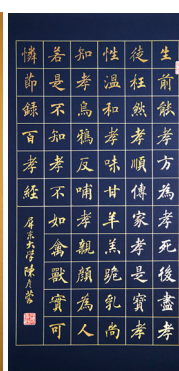 生前能孝方為孝死後盡孝
徒枉然孝順傳家孝是寶孝
性溫和孝味甘羊羔跪乳尚
知孝烏鴉反哺孝親顏為人
若是不知孝不如禽獸實可
憐節錄百孝經
屏東大學陳